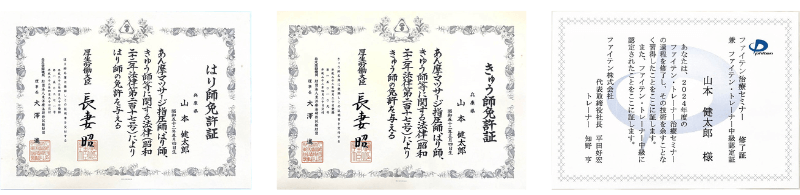 はり師免許証
兵庫県
山本 健太郎
あん摩マツサージ指圧師、はり師、
きゆう師等に関する法律(昭和
二十二年法律第二百十七号)により
はり師の免許を与える
厚生労働大臣 長妻 昭
理事長 大澤 進
きゅう師免許証
兵庫県
山本 健太郎
あん摩マツサージ指圧師、はり師、
きゆう師等に関する法律(昭和
二十二年法律第二百十七号)により
きゅう師の免許を与える
厚生労働大臣 長妻 昭
理事長 大澤 進
Phiten
ファイテン治療セミナー 修了証
兼 ファイテン・トレーナー中級認定証
山本 健太郎 様
あなたは、2024年度の
ファイテン・トレーナー治療セミナー
の課程を修了し、その技術を余すことな
く習得したことをここに証します。
また、ファイテン・トレーナー中級に
認定されたことをここに証します。
ファイテン株式会社
代表取締役社長 平田好宏
トレーナー 知野 亨